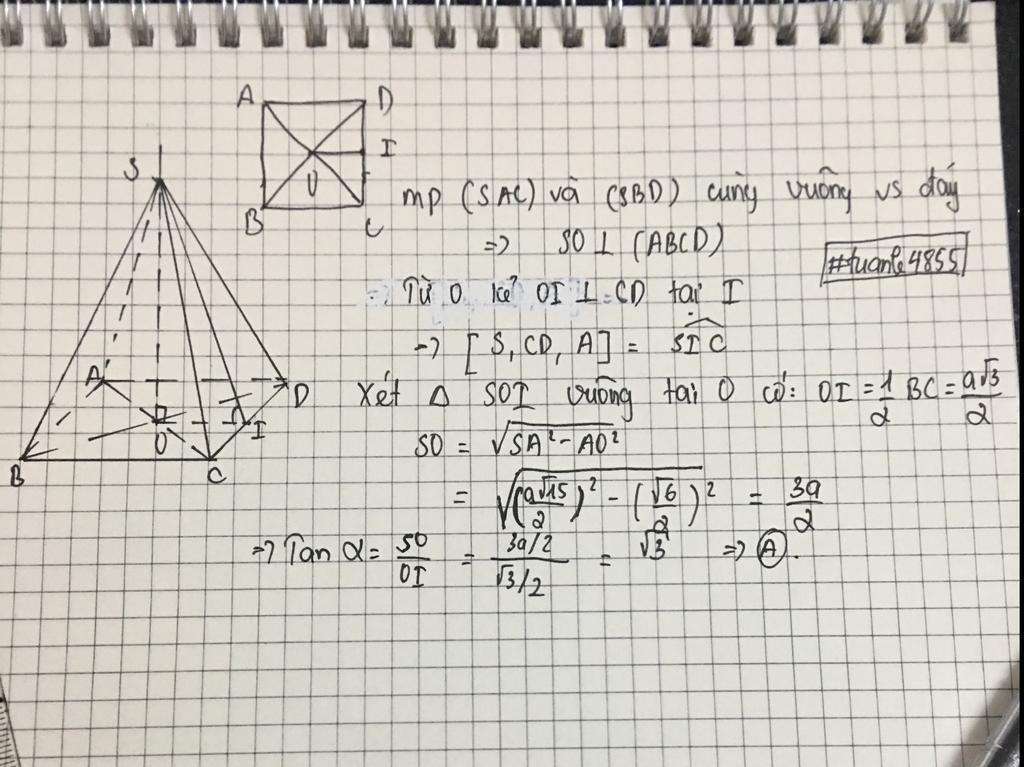 A D
I
O
B C
S
A D
O I
B C
mp (SAC) và (SBD) cùng vuông vs đáy
=> SO ⊥ (ABCD)
#tuanle4855
Từ O kẻ OI ⊥ CD tại I
-> [S, CD, A] = SIC
Xét Δ SOI vuông tại O có: OI = 1/2 BC = a√3/2
SO = √(SA² - AO²)
= √((a√15/2)² - (√6/2)²) = 3a/2
=> Tan α = SO/OI = (3a/2)/(√3/2) = √3 => A.